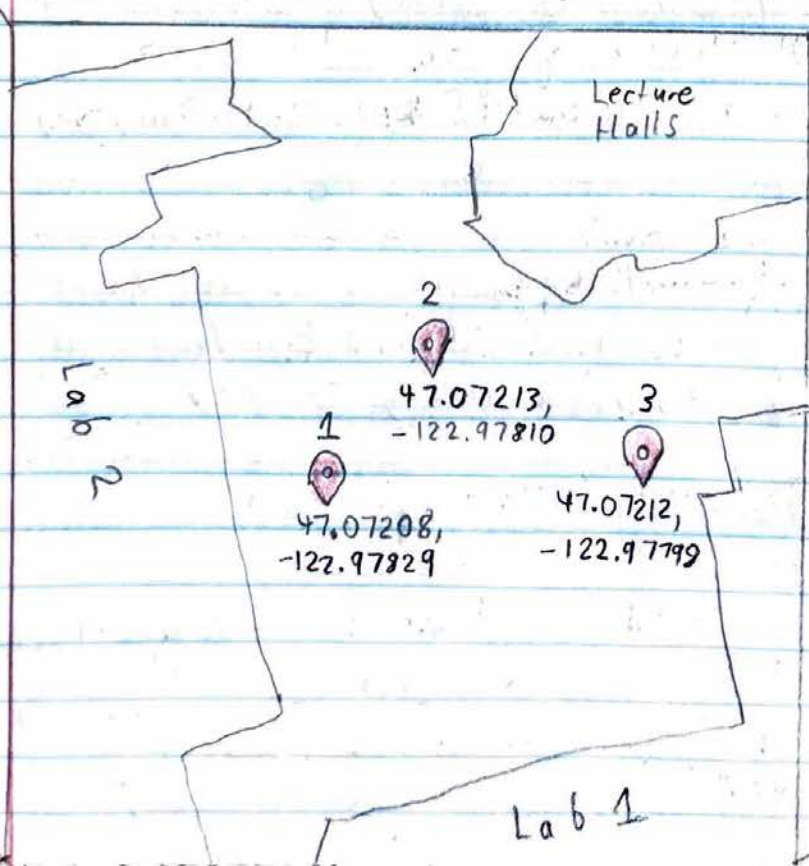 Lecture
Halls
2
47.07213,
-122.97810
3
1
Lab 2
47.07208,
-122.97829
47.07212,
-122.97798
Lab 1